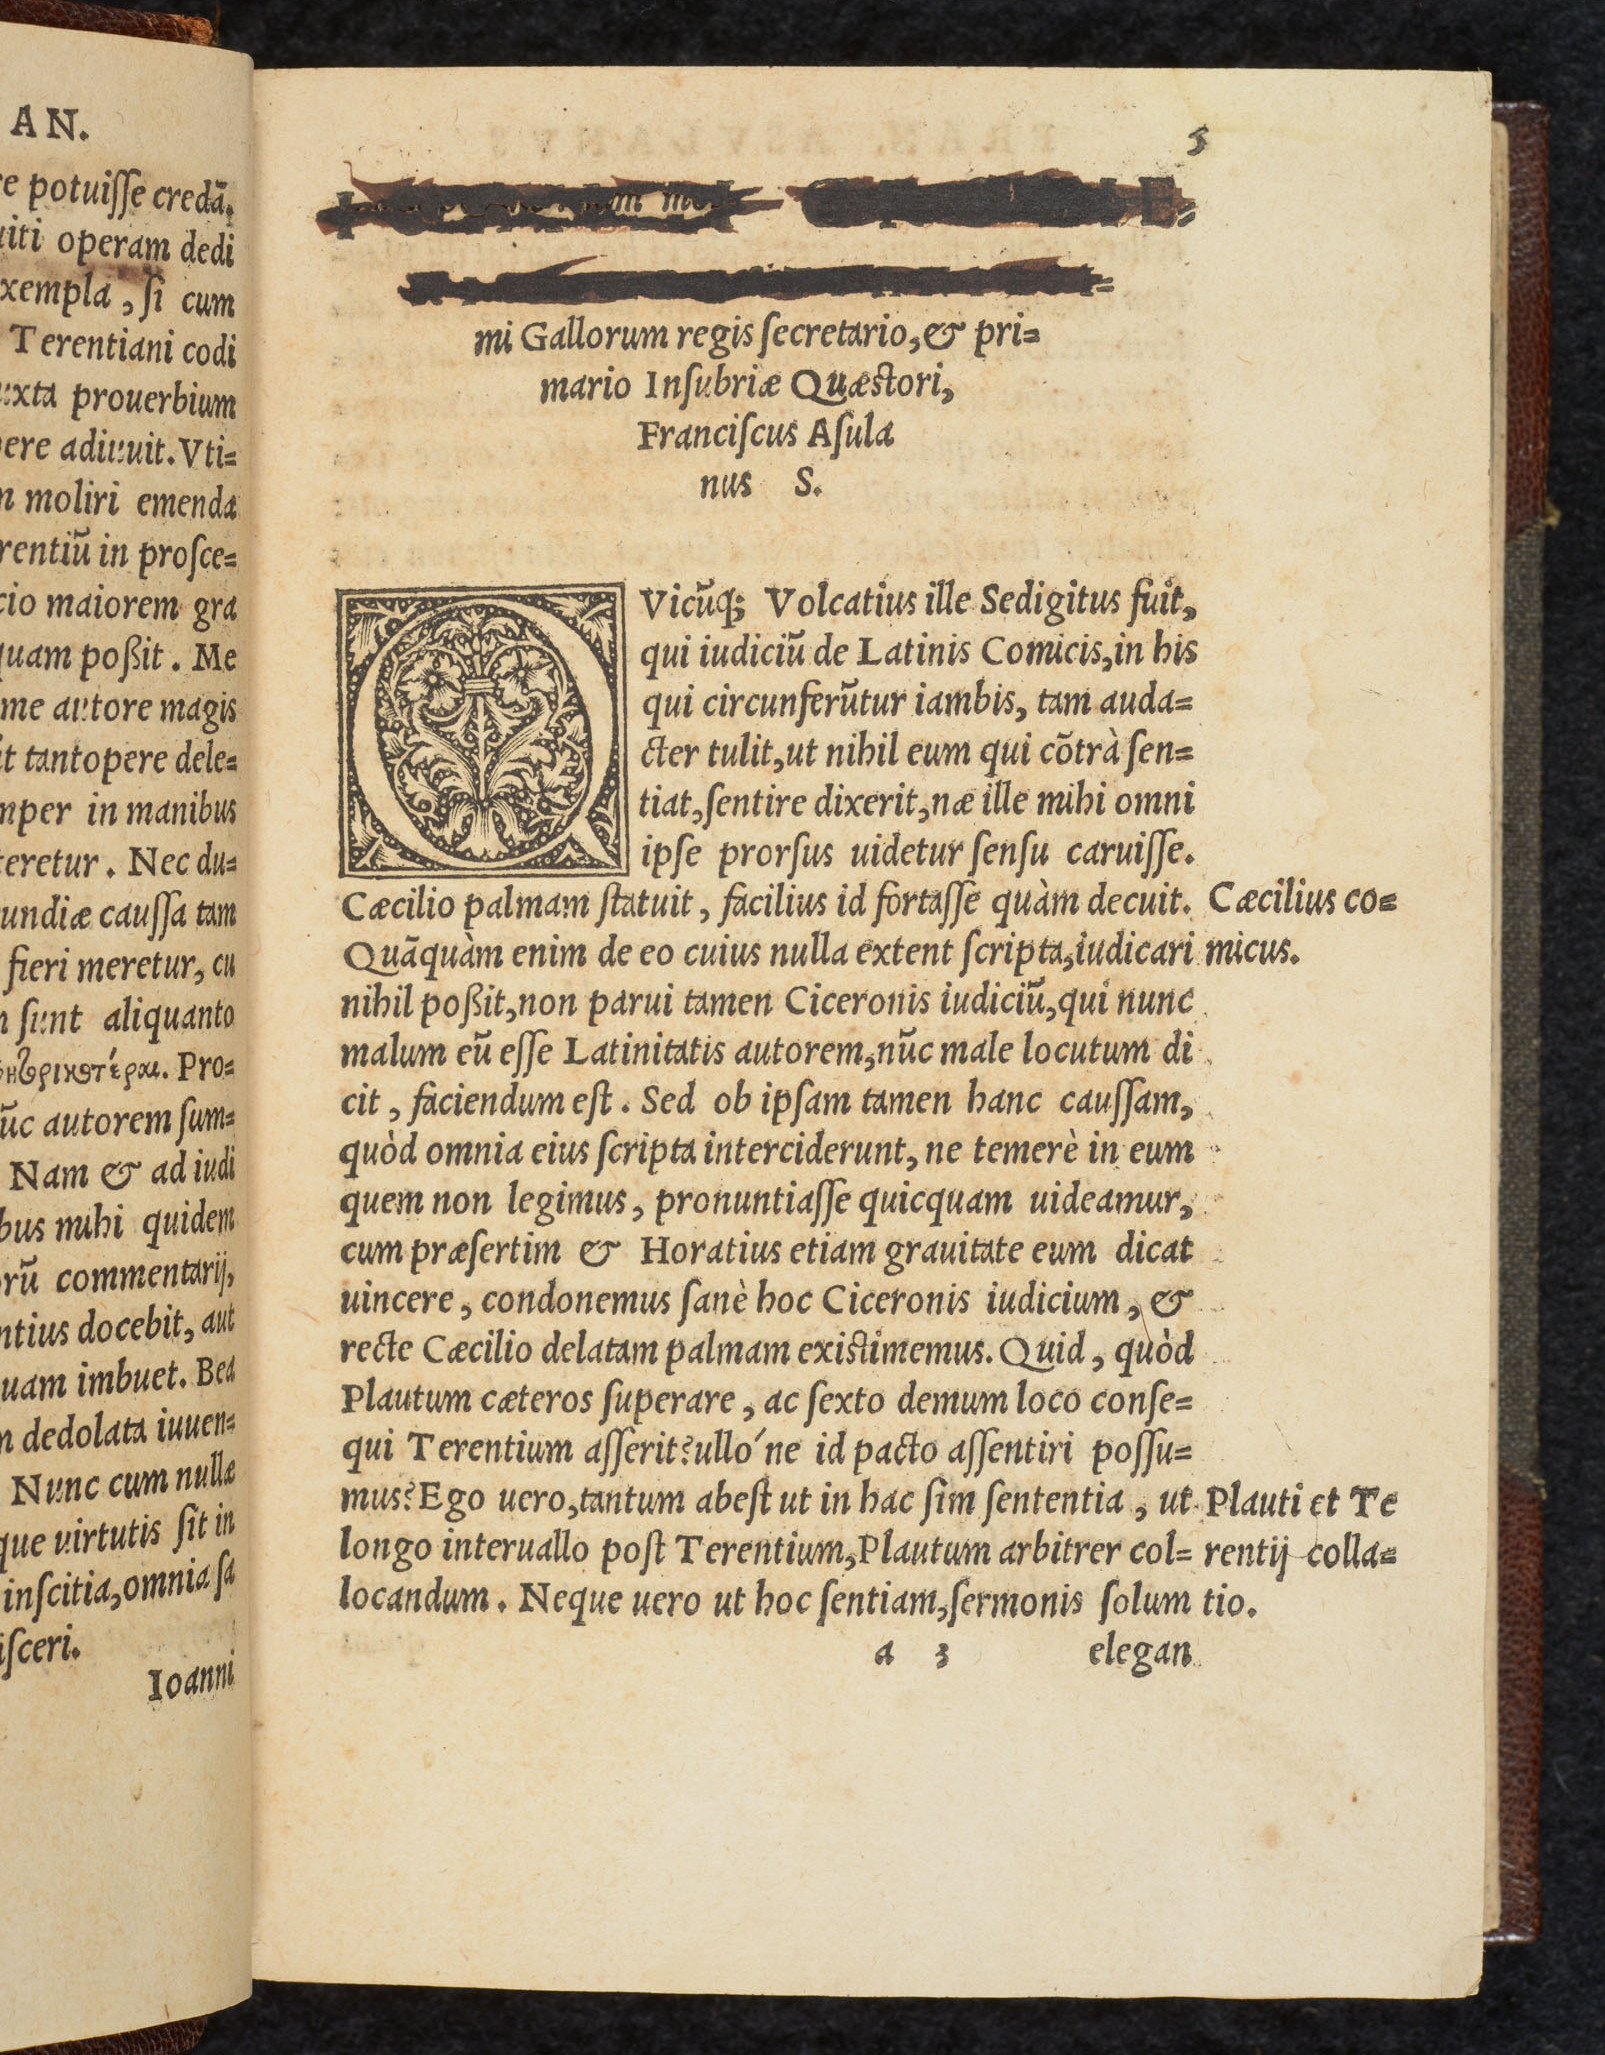 AN.
re potuiſſe credā.
uiti operam dedi
xempla, ſi cum
Terentiani codi
uxta prouerbium
pere adiuuit. Vti=
n moliri emenda
rentiū in proſce=
cio maiorem gra
quam poßit. Me
me autore magis
it tantopere dele=
mper in manibus
teretur. Nec du=
undiæ cauſſa tam
fieri meretur, cu
n ſunt aliquanto
Pro=
ūc autorem ſum=
Nam & ad iudi
bus mihi quidem
orū commentarij,
ntius docebit, aut
quam imbuet. Bea
m dedolata iuuen=
Nunc cum nullæ
que virtutis ſit in
inſcitia, omnia ſa
iſceri.
Ioanni
3
mi Gallorum regis ſecretario, & pri=
mario Inſubriæ Quæſtori,
Franciſcus Aſula
nus S.
Vicūq; Volcatius ille Sedigitus fuit,
qui iudiciū de Latinis Comicis, in his
qui circunferūtur iambis, tam auda=
cter tulit, ut nihil eum qui cōtrà ſen=
tiat, ſentire dixerit, næ ille mihi omni
ipſe prorſus uidetur ſenſu caruiſſe.
Cæcilio palmam ſtatuit, facilius id fortaſſe quàm decuit. Cæcilius co=
Quāquàm enim de eo cuius nulla extent ſcripta, iudicari micus.
nihil poßit, non parui tamen Ciceronis iudiciū, qui nunc
malum eū eſſe Latinitatis autorem, nūc male locutum di
cit, faciendum eſt. Sed ob ipſam tamen hanc cauſſam,
quòd omnia eius ſcripta interciderunt, ne temerè in eum
quem non legimus, pronuntiaſſe quicquam uideamur,
cum præſertim & Horatius etiam grauitate eum dicat
uincere, condonemus ſanè hoc Ciceronis iudicium, &
recte Cæcilio delatam palmam exiſtimemus. Quid, quòd
Plautum cæteros ſuperare, ac ſexto demum loco conſe=
qui Terentium aſſerit? ullo´ne id pacto aſſentiri poſſu=
mus? Ego uero, tantum abeſt ut in hac ſim ſententia, ut Plauti et Te
longo interuallo poſt Terentium, Plautum arbitrer col= rentij colla=
locandum. Neque uero ut hoc ſentiam, ſermonis ſolum tio.
a 3 elegan